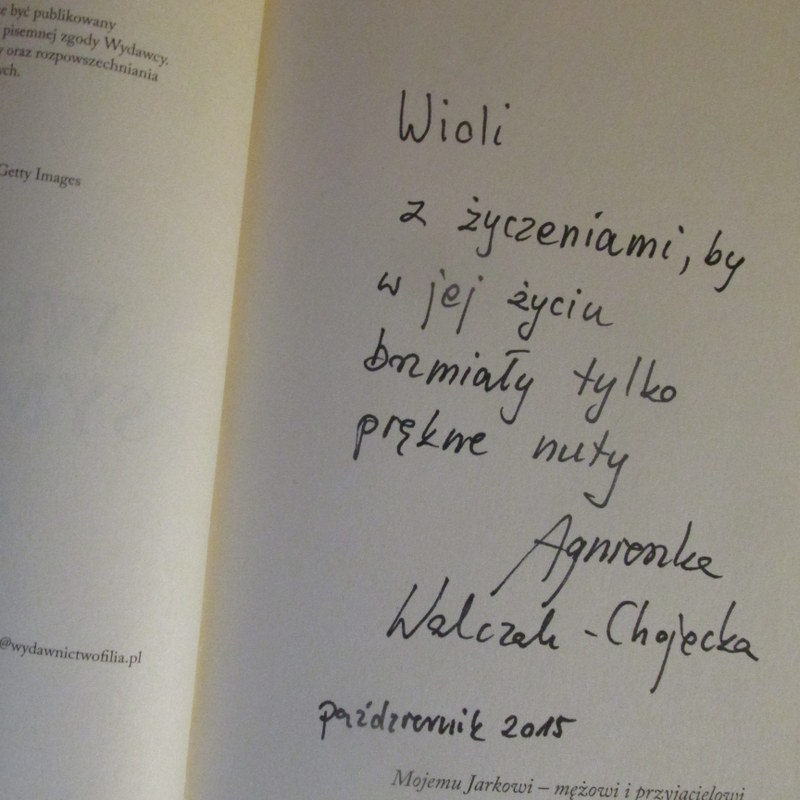 e być publikowany
pisemnej zgody Wydawcy.
oraz rozpowszechniania
ych.
Getty Images
@wydawnictwofilia.pl
Wioli
z życzeniami, by
w jej życiu
brzmiały tylko
piękne nuty
Agnieszka
Walczak-Chojecka
październik 2015
Mojemu Jarkowi – mężowi i przyjacielowi